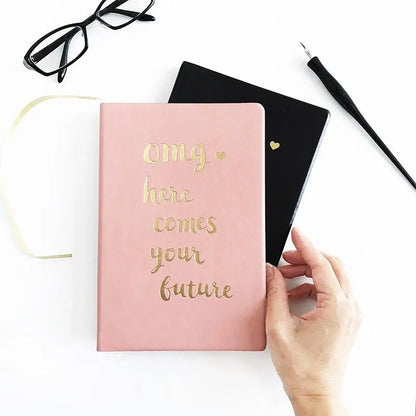 omg
here
comes
your
future